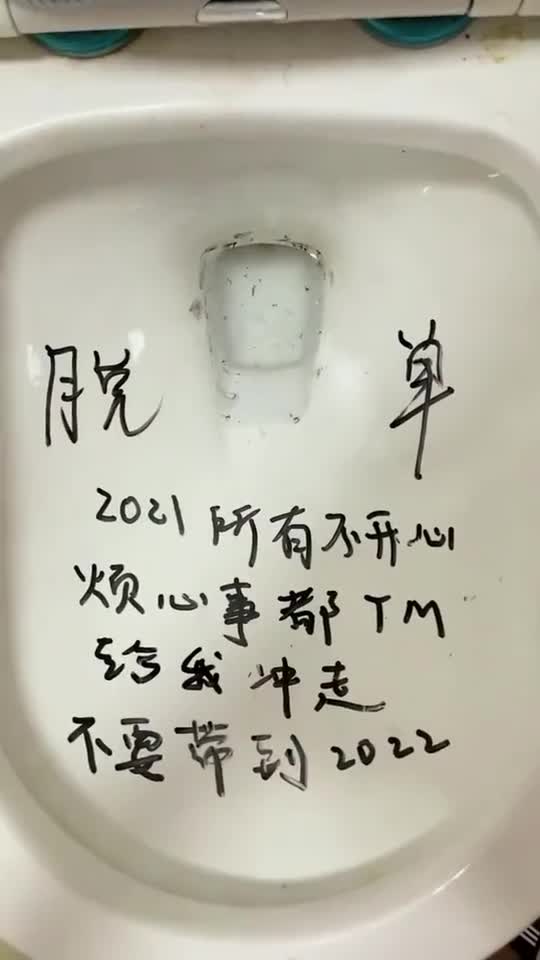 脱 单
2021 所有不开心
烦心事都TM
给我冲走
不要带到2022